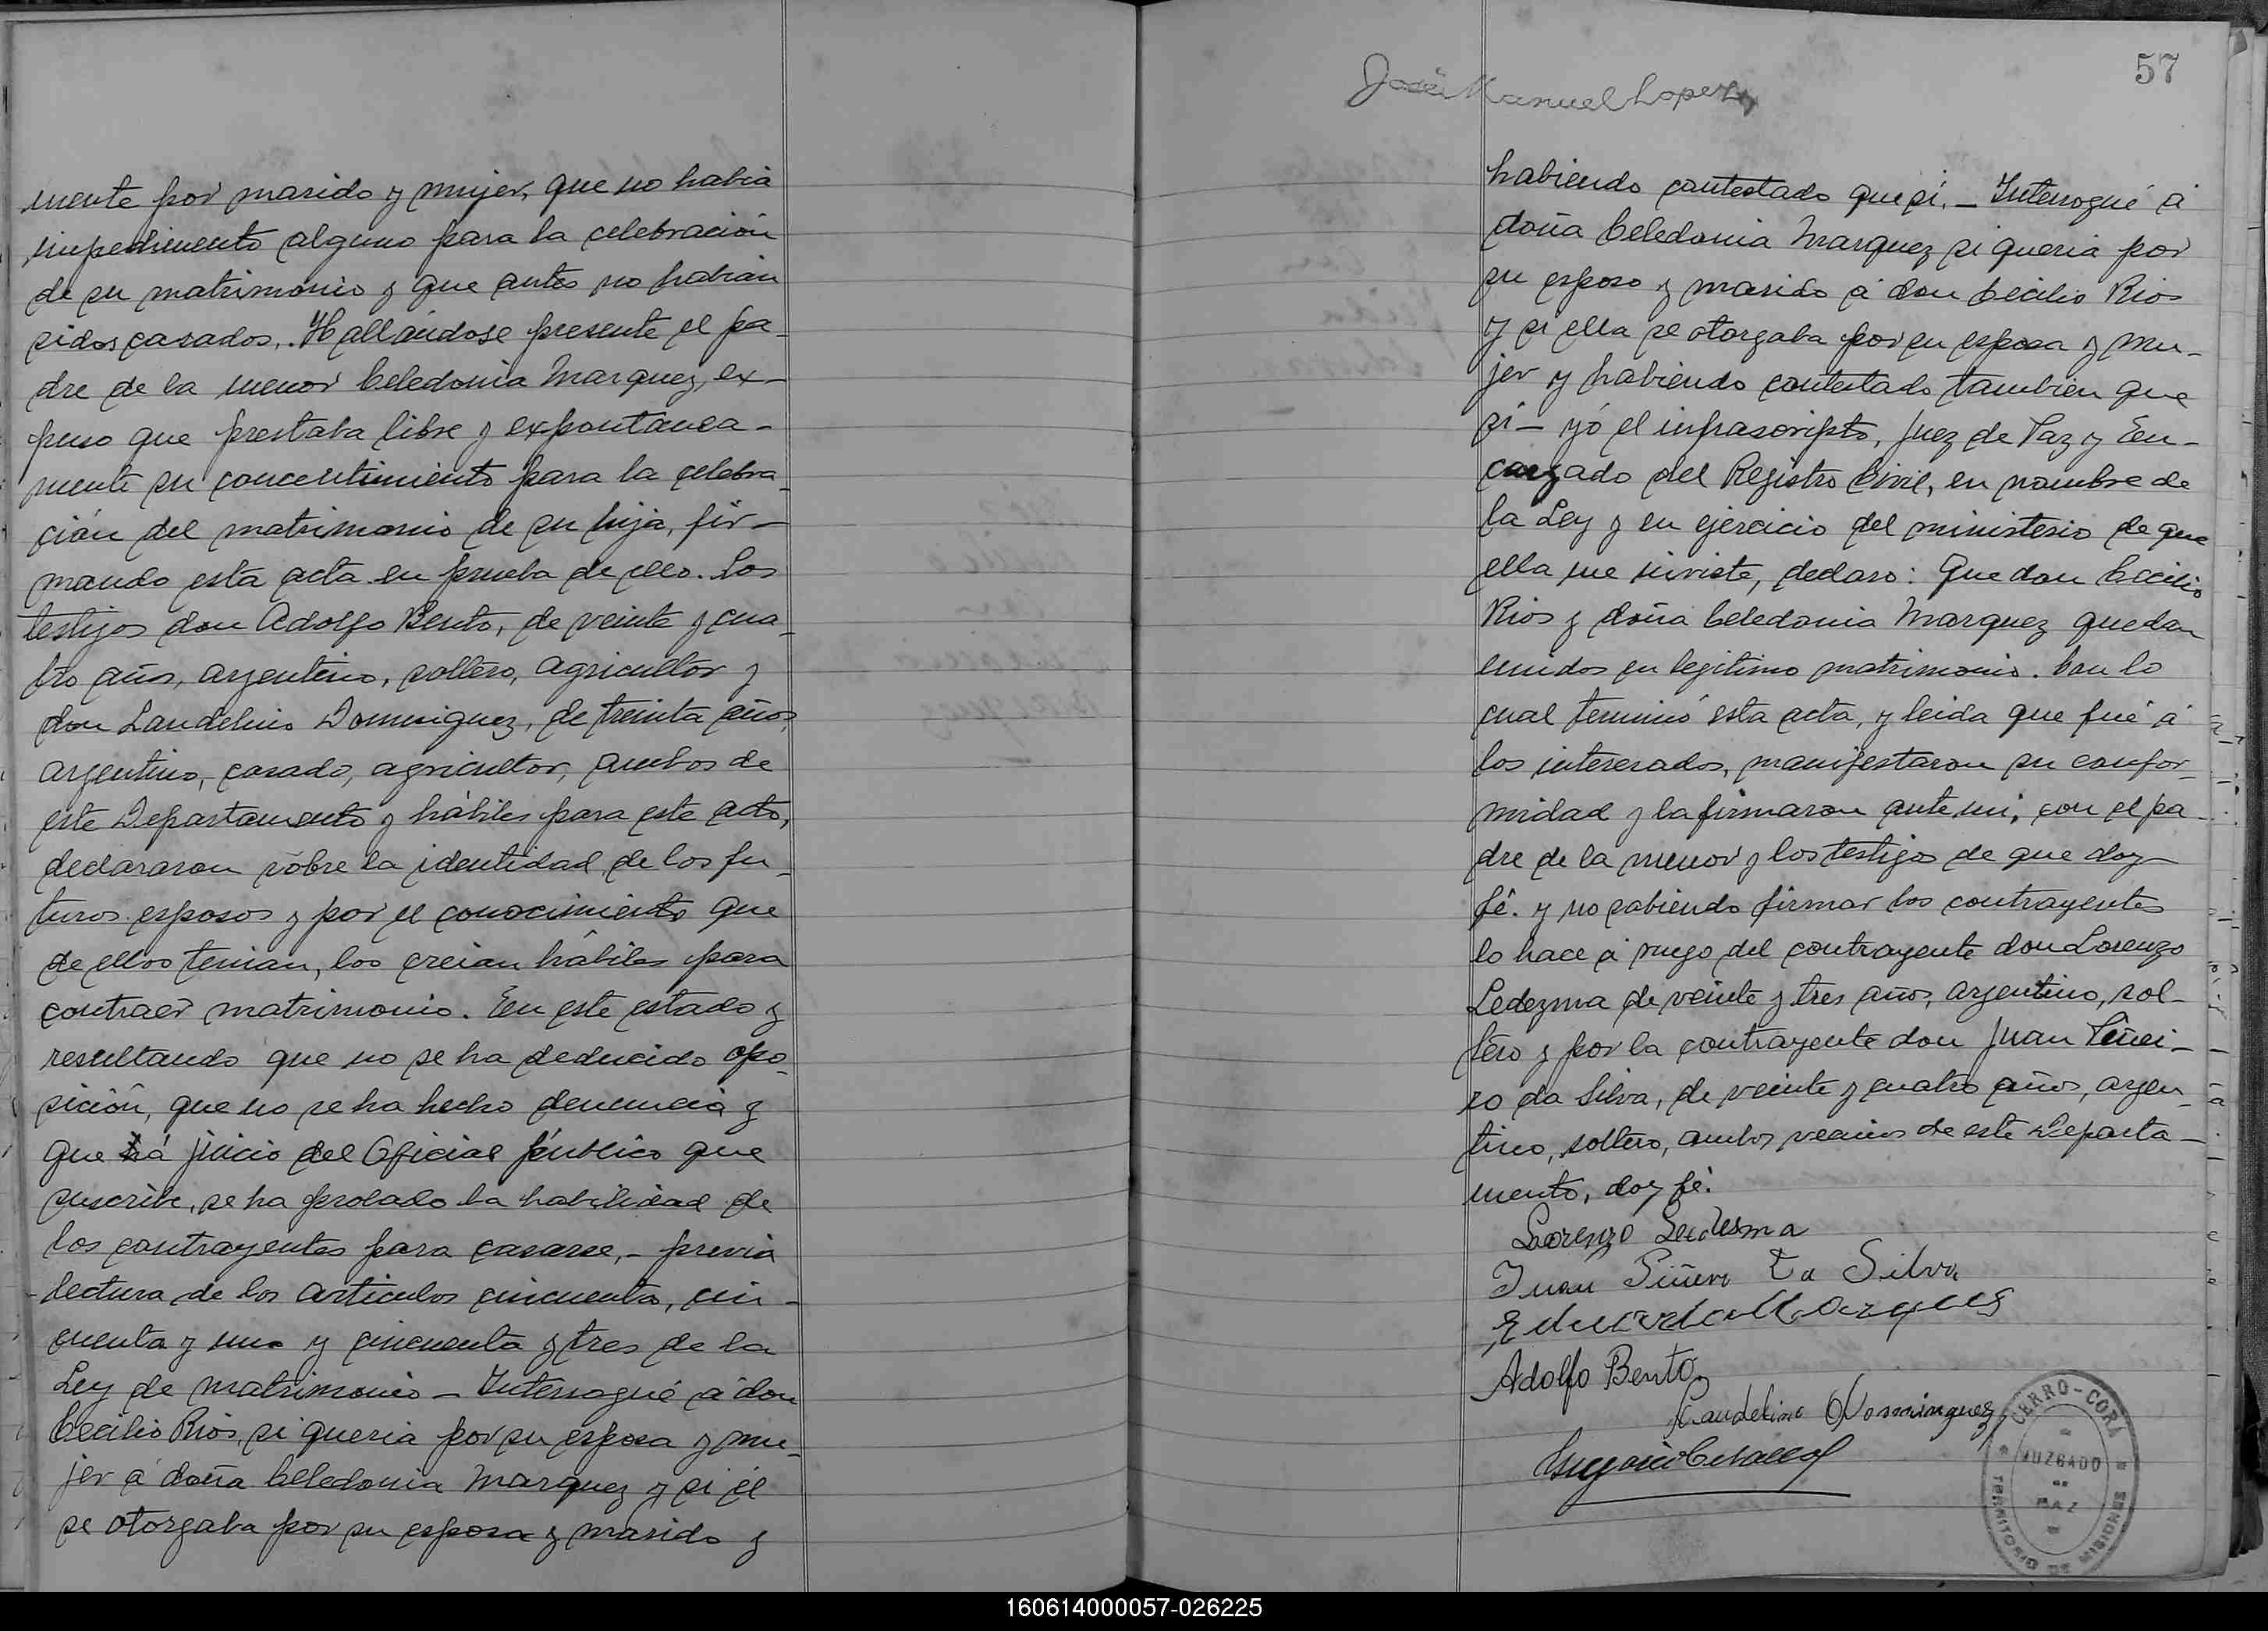 mente por marido y mujer, que no habia
impedimento alguno para la celebración
de su matrimonio y que antes no habian
sidos casados. Hallándose presente el pa-
dre de la menor Celedonia Marquez, ex-
puso que prestaba libre y expontanea-
mente su concentimiento para la celebra-
ción del matrimonio de su hija, fir-
mando esta acta en prueba de ello. Los
testigos don Adolfo Bento, de veinte y cua-
tro años, argentino, soltero, agricultor y
don Landelino Dominguez, de treinta años,
argentino, casado, agricultor, ambos de
este Departamento y hábiles para este acto,
declararon sobre la identidad de los fu-
turos esposos y por el conocimiento que
de ellos tenian, los creian hábiles para
contraer matrimonio. En este estado y
resultando que no se ha deducido opo-
sición, que no se ha hecho denuncia y
que á juicio del Oficial público que
suscribe, se ha probado la habilidad de
los contrayentes para casarse, - previa
lectura de los articulos cincuenta, cin-
cuenta y uno y cincuenta y tres de la
Ley de matrimonio - Interrogué a don
Cecilio Rios, si queria por su esposa y mu-
jer á doña Celedonia Marquez y si él
se otorgaba por su esposa y marido y
57
José Manuel Lopez
habiendo contestado que sí. - Interrogué á
doña Celedonia Marquez si queria por
su esposo y marido á don Cecilio Rios
y si ella se otorgaba por su esposa y mu-
jer y habiendo contestado tambien que
sí - yó el infrascripto, Juez de Paz y En-
cargado del Registro Civil, en nombre de
la Ley y en ejercicio del ministerio de que
ella me inviste, declaro: Que don Cecilio
Rios y doña Celedonia Marquez quedan
unidos en legitimo matrimonio. Con lo
cual terminó esta acta, y leida que fué á
los interesados, manifestaron su confor-
midad y la firmaron ante mi, con el pa-
dre de la menor y los testigos de que doy
fé. y no sabiendo firmar los contrayentes
lo hace á ruego del contrayente don Lorenzo
Ledezma de veinte y tres años, argentino, sol-
tero y por la contrayente don Juan Piñei-
ro da Silva, de veinte y cuatro años, argen-
tino, soltero, ambos vecinos de este Departa-
mento, doy fé.
Lorenzo Ledesma
Juan Piñero Da Silva
Eduardo Marques
Adolfo Bento
Landelino Dominguez
CERRO-CORÁ
JUZGADO
DE
PAZ
TERRITORIO DE MISIONES
160614000057-026225